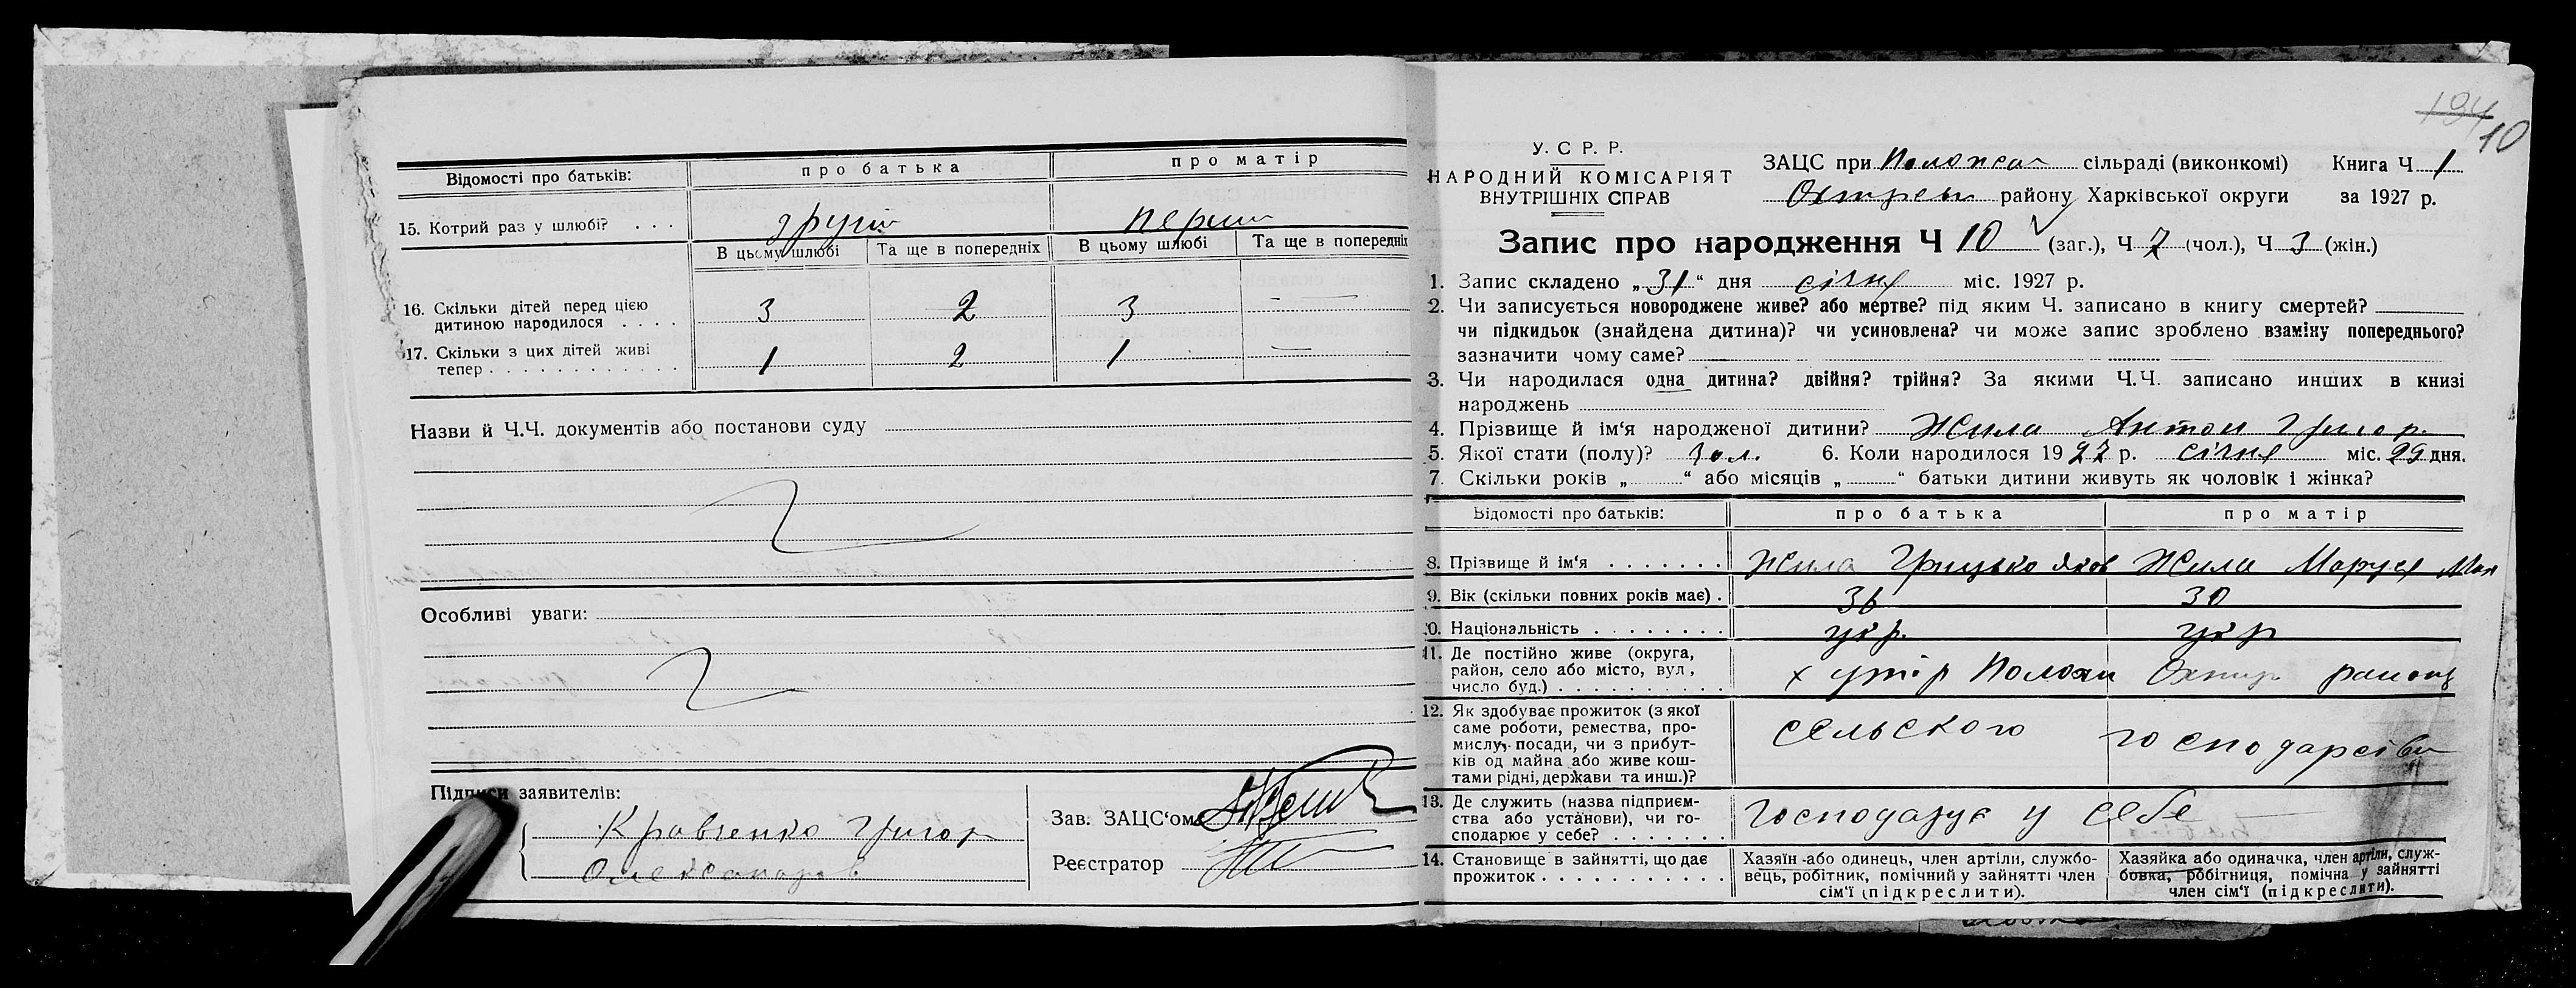 Відомості про батьків: про батька про матір
15. Котрий раз у шлюбі? . . . другий перший
В цьому шлюбі Та ще в попередніх В цьому шлюбі Та ще в попередніх
16. Скільки дітей перед цією
дитиною народилося . . . . 3 2 3 —
17. Скільки з цих дітей живі
тепер . . . . . . . . . . . . 1 2 1 —
Назви й Ч.Ч. документів або постанови суду
Особливі уваги:
Підписи заявителів:
Кравченко Григор
Олександров
Зав. ЗАЦС'ом
Реєстратор
194 10
У. С Р. Р.
НАРОДНИЙ КОМІСАРІЯТ
ВНУТРІШНІХ СПРАВ
ЗАЦС при сільраді (виконкомі) Книга Ч. 1
району Харківської округи за 1927 р.
Запис про народження Ч 10 (заг.), Ч 7 (чол.), Ч 3 (жін.)
1. Запис складено „31“ дня січня міс. 1927 р.
2. Чи записується новороджене живе? або мертве? під яким Ч. записано в книгу смертей?
чи підкидьок (знайдена дитина)? чи усиновлена? чи може запис зроблено взаміну попереднього?
зазначити чому саме?
3. Чи народилася одна дитина? двійня? трійня? За якими Ч.Ч. записано инших в книзі
народжень
4. Прізвище й ім'я народженої дитини? Жила Антон Григор.
5. Якої стати (полу)? чол. 6. Коли народилося 1927 р. січня міс. 29 дня.
7. Скільки років „ “ або місяців „ “ батьки дитини живуть як чоловік і жінка?
Відомості про батьків: про батька про матір
8. Прізвище й ім'я . . . . . . . Жила Грицько Яков Жила Маруся
9. Вік (скільки повних років має) . 36 30
10. Національність . . . . . . . . укр. укр
11. Де постійно живе (округа,
район, село або місто, вул,
число буд.) . . . . . . . . . . . хутір Положи Охтир району
12. Як здобуває прожиток (з якої
саме роботи, ремества, про-
мислу, посади, чи з прибут-
ків од майна або живе кош-
тами рідні, держави та инш.)? сельского господарства
13. Де служить (назва підприєм-
ства або установи), чи го-
сподарює у себе? . . . . . . . Господарує у себе
14. Становище в зайнятті, що дає
прожиток . . . . . . . . . . .
Хазяїн або одинець, член артіли, службо-
вець, робітник, помічний у зайнятті член
сім'ї (підкреслити).
Хазяйка або одиначка, член артіли, служ-
бовка, робітниця, помічна у зайнятті
член сім'ї (підкреслити).